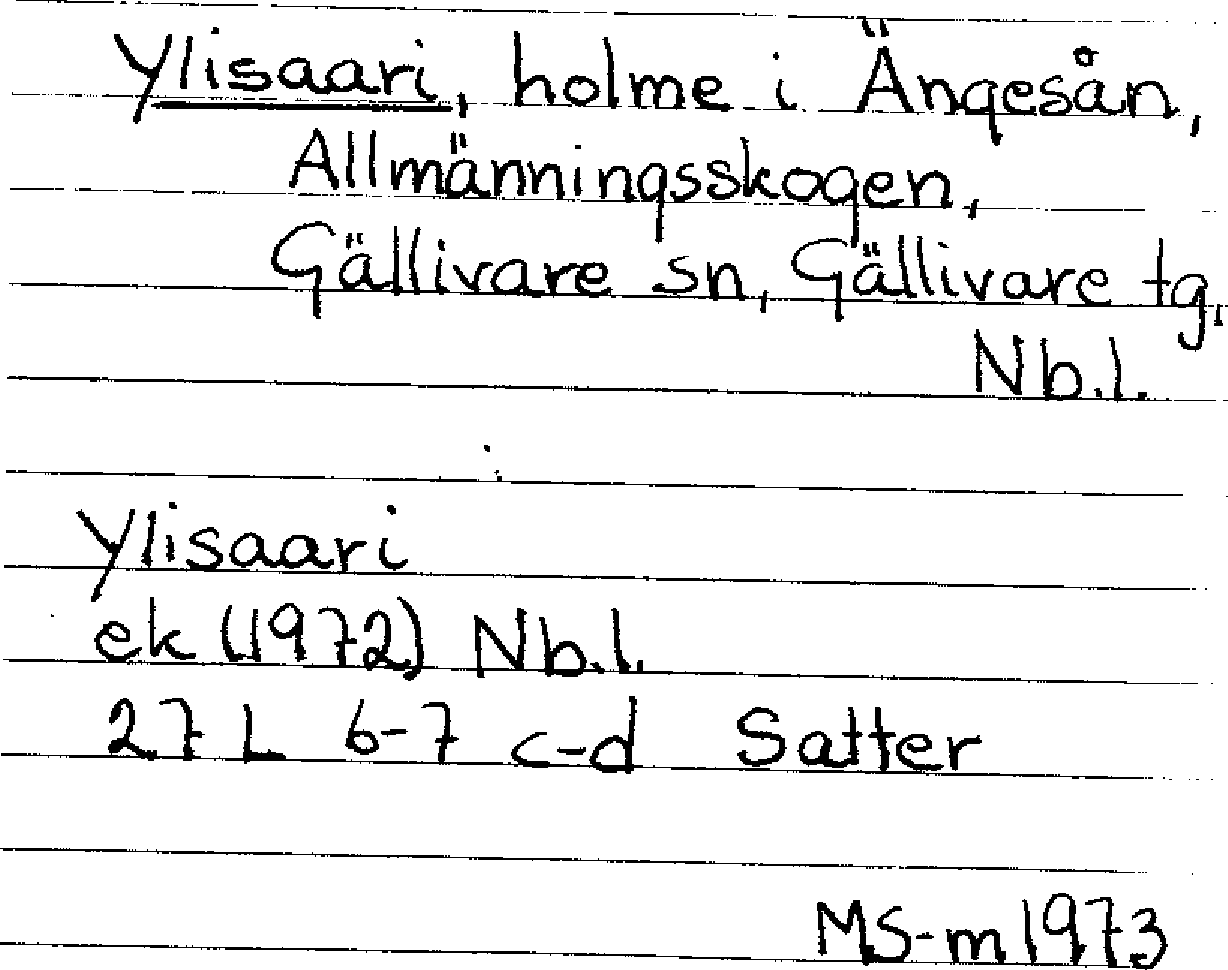 Ylisaari, holme i Ängesån,
Allmänningsskogen,
Gällivare sn, Gällivare tg,
Nb.l.
Ylisaari
ek (1972) Nb.l.
27 L 6-7 c-d Satter
MS-m 1973